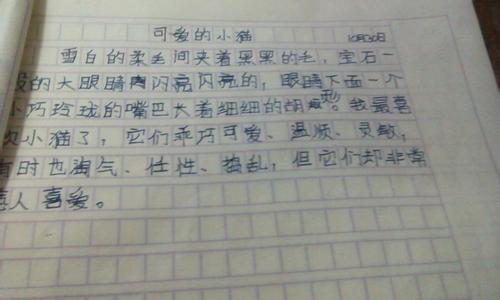 可爱的小猫 10月30日
雪白的柔毛间夹着黑黑的毛，宝石一
般的大眼睛闪亮闪亮的，眼睛下面一个
小巧玲珑的嘴巴长着细细的胡须。我最喜
欢小猫了，它们乖巧可爱、温顺、灵敏，
有时也淘气、任性、捣乱，但它们却非常
惹人喜爱。